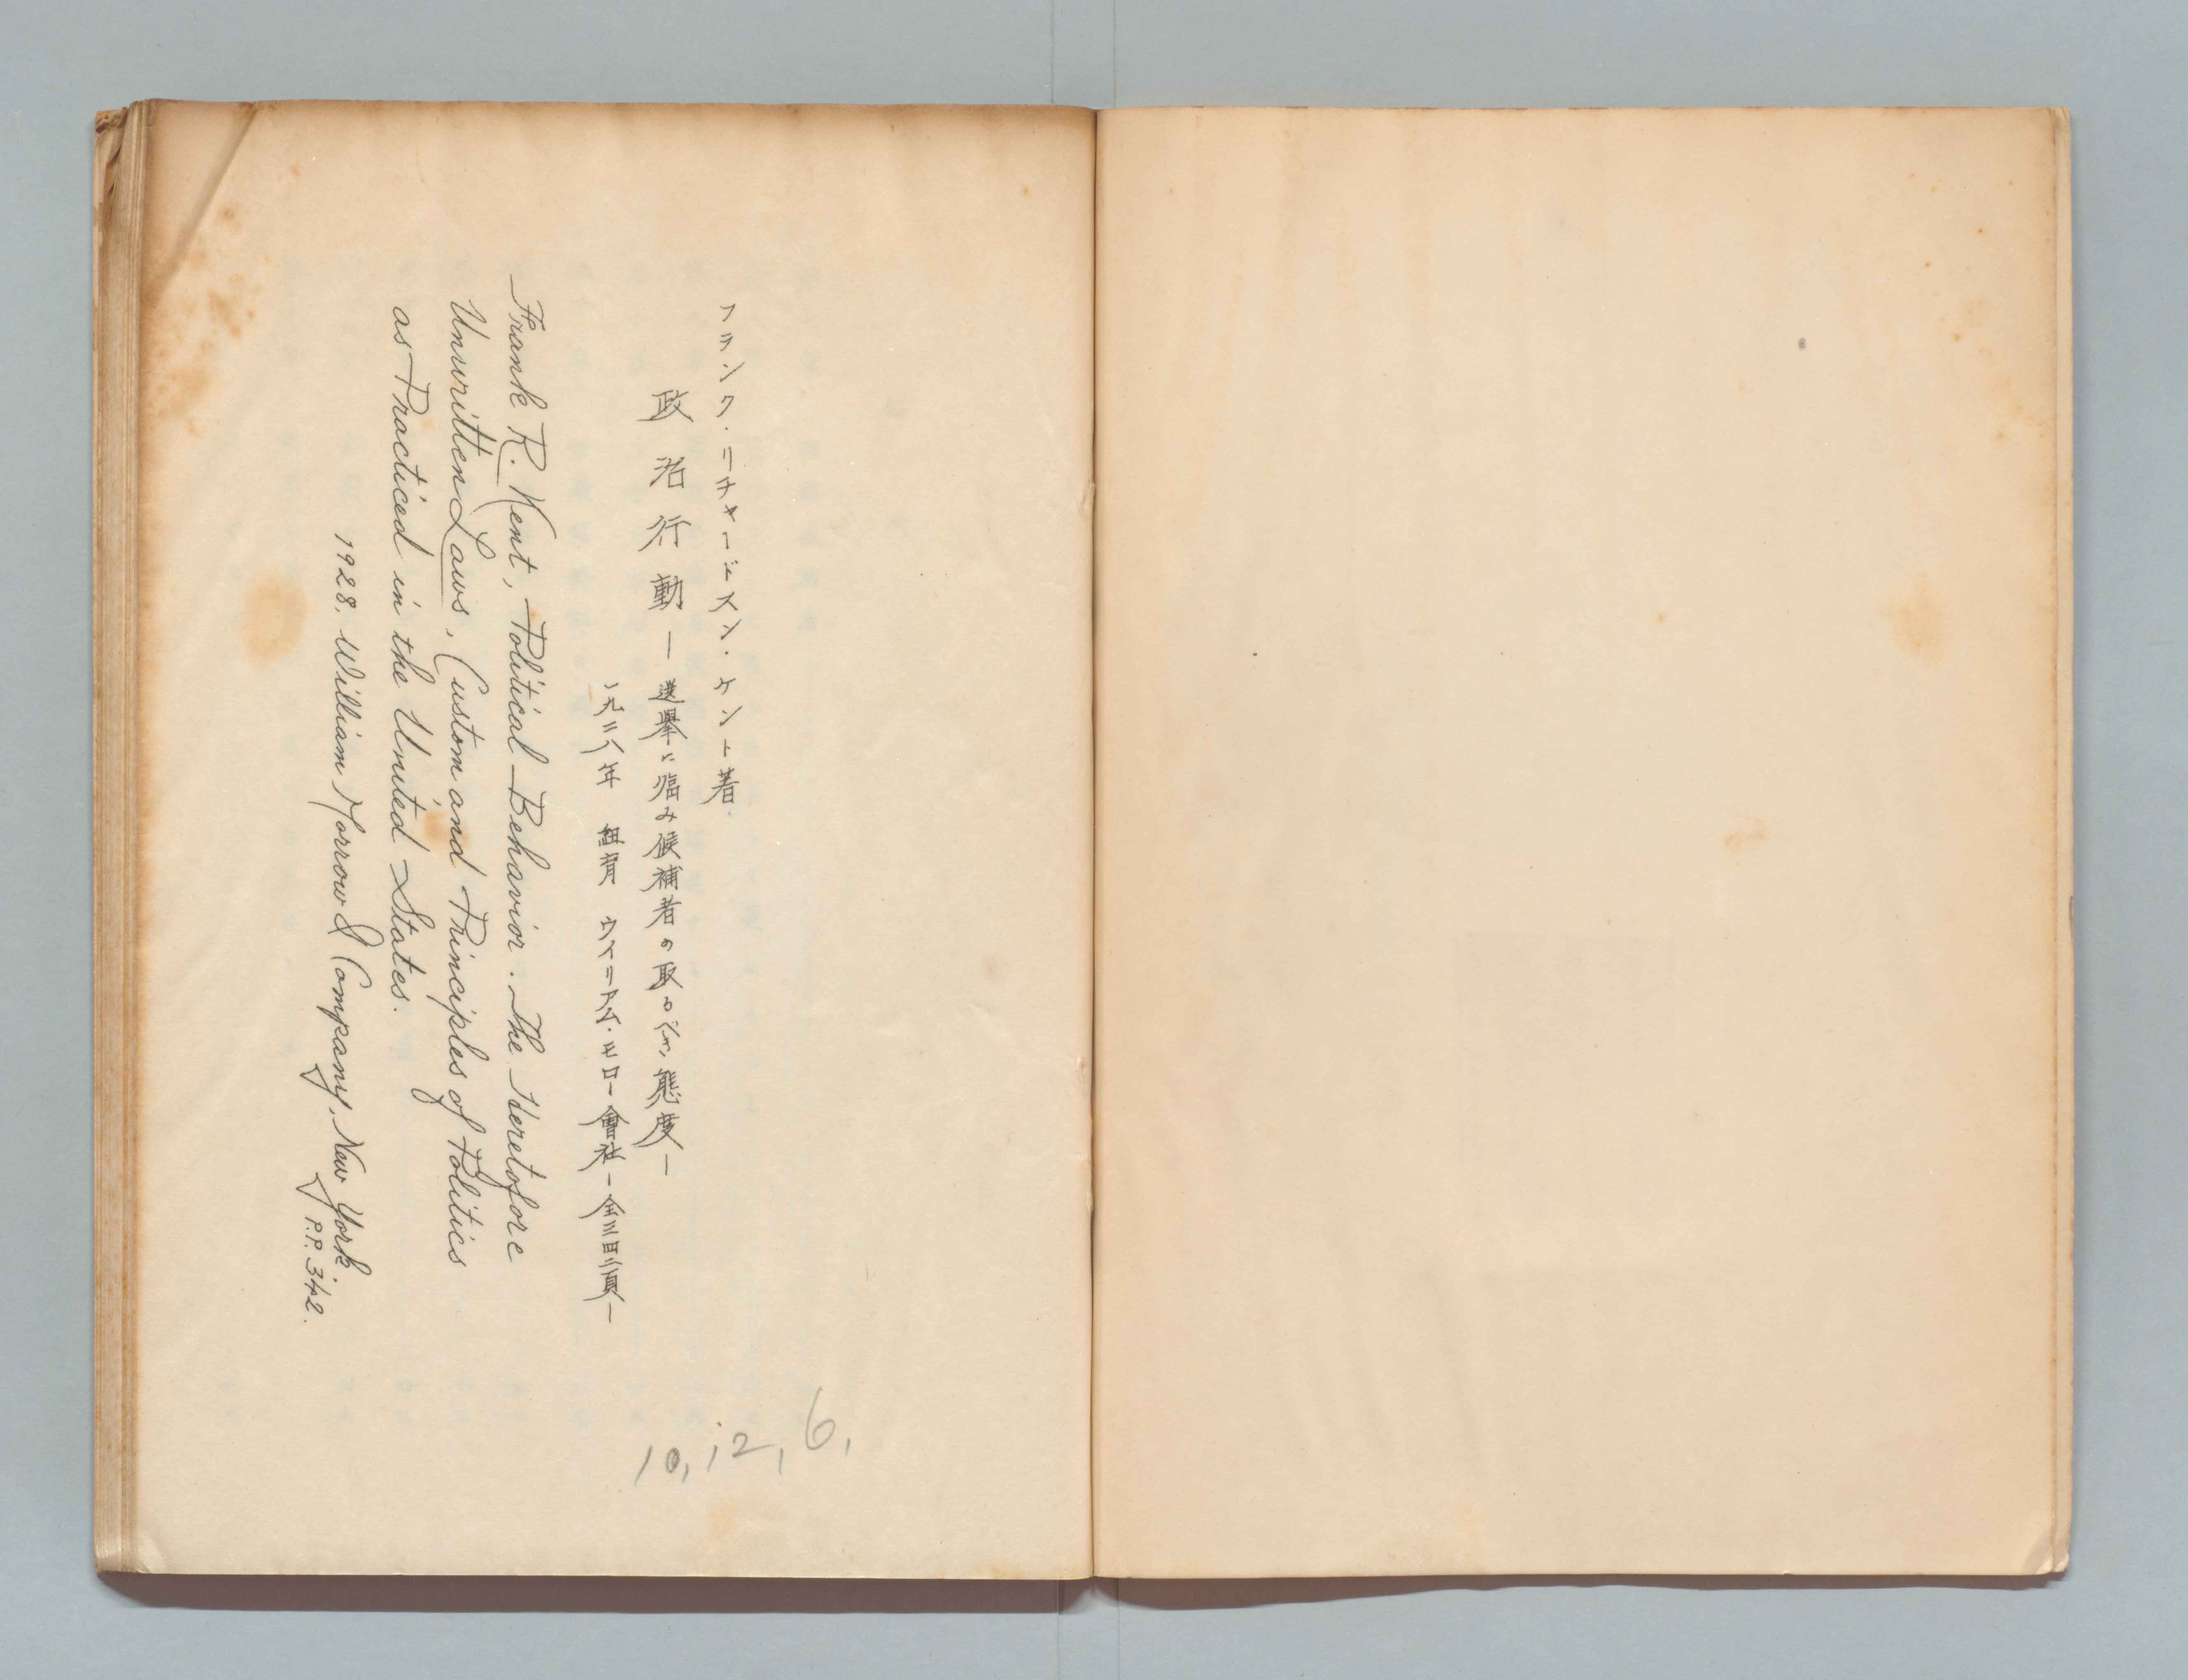 フランク・リチャードスン・ケント著
政治行動—選挙に臨み候補者の取るべき態度—
一九二八年　紐育　ウイリアム・モロー會社—全三四二頁—
Frank R. Kent, Political Behavior. The Heretofore
Unwritten Laws, Custom and Principles of Politics
as Practiced in the United States.
1928. William Morrow & Company, New York.
P.P. 342.
10, 12, 6,